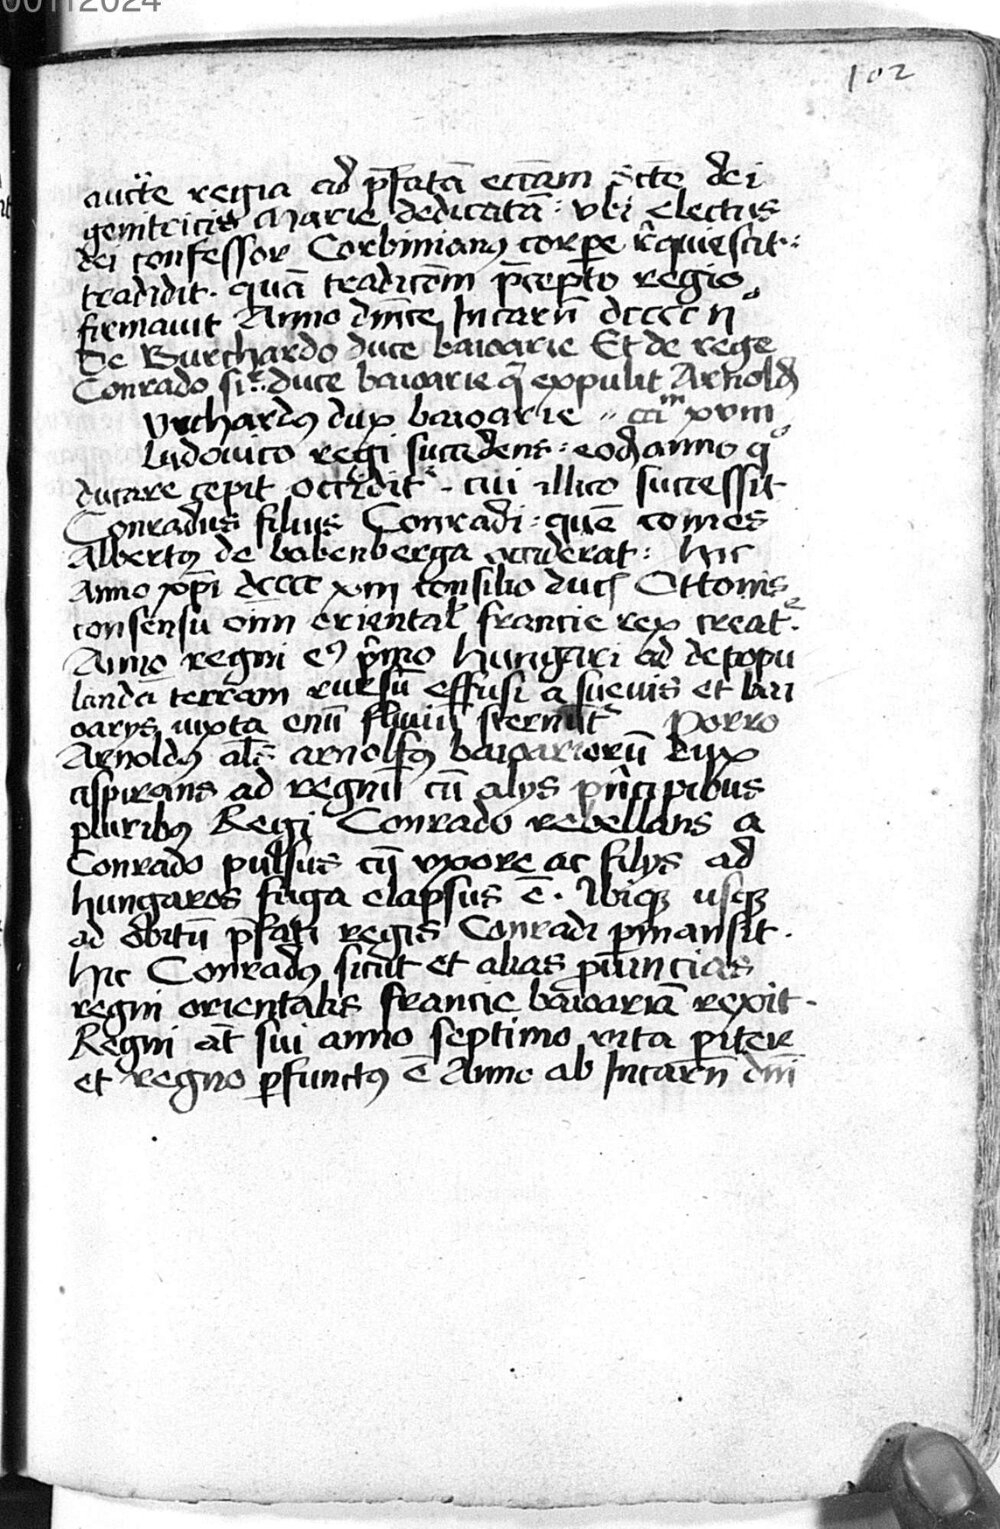 00112024
102
aucte regia ad p̄fatā ecc̄am s̄cte dei
genitricis Marie dedicatā : vbi electus
dei confessor Corbinianꝰ corpe r̄quiescit :
tradidit . quā tradic̄om p̄cepto regio
firmauit Anno dn̄ice Incarn̄ dcccc ii°
De Burchardo duce baioarie Et de rege
Conrado duce baioarie q̄ expulit Arnoldꝰ
Vrchardꝰ dux baioarie xviii
Ludouico regi succedens : eod̄ anno q°
ducare cepit occidit . cui illico successit
Conradus filius Conradi : quē comes
Albertꝰ de babenberga occiderat : hic
Anno xp̄i dcccc xiii consilio ducꝭ Ottonis
consensu om̄i oriental francie rex creat .
Anno regni eꝰ p̄mo hungari ad depopu
landā terram rursū effusi a sueuis et bai
oarys iuxta enū fluuiū sternūt Porro
Arnoldꝰ al̄s arnolfꝰ baioariorū Dux
aspirans ad regnū cū alys p̄ncipibus
pluribꝰ Regi Conrado rebellans a
Conrado pulsus cū vxore ac filys ad
hungaros fuga elapsus ē . Ibiqꝫ usqꝫ
ad obitū p̄fati regis Conradi pmansit .
hic Conradꝰ sicut et alias p̄uincias
regni orientalis francie baioariā rexit .
Regni at̄ sui anno septimo vita piter
et regno pfunctꝰ ē Anno ab Incarn̄ dn̄i